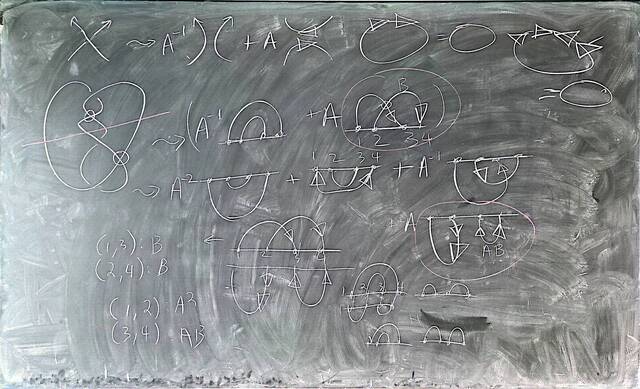 A⁻¹ + A
=
=
(A⁻¹ + A B
1 2 3 4
A² + 1 2 3 4 + A⁻¹ A
+ A
AB
(1,3): B
(2,4): B
(1,2): A²
(3,4): AB